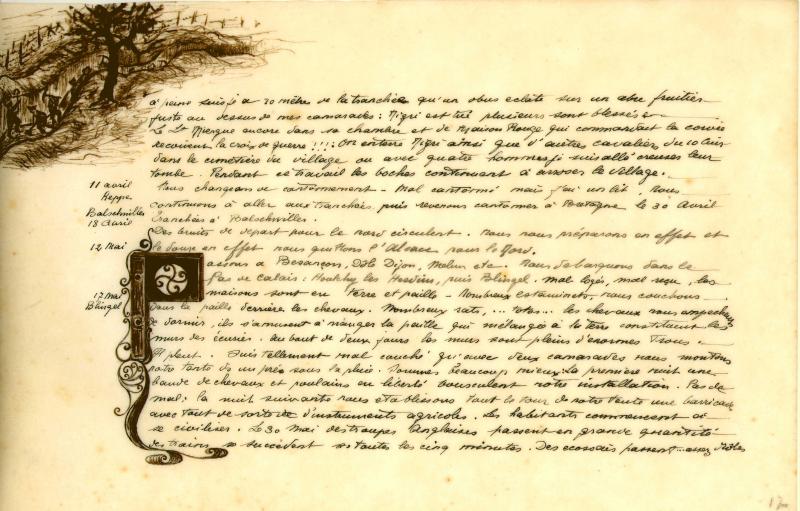 à peine suis-je à 30 mètres de la tranchée qu'un obus éclate sur un arbre fruitier
juste au dessus de mes camarades: Nigri est tué plusieurs sont blessés
Le Lt Niergue encore dans sa chambre et de Maison Rouge qui commandait la corvée
recoivent la croix de guerre!!!; On enterre Nigri ainsi que d'autres cavaliers du 10 Cuir
dans le cimetière du village ou avec quatre hommes je suis allé creuser leur
tombe. Pendant ce travail les boches continuent à arroser le village.
11 avril
Heppe
Nous changeons de cantonnement - Mal cantonné mais j'ai un lit. Nous
continuons à aller aux tranchées puis revenons cantonner à Bretagne le 30 Avril
Balschwiller
18 Avril
Tranchées à Balschwiller.
Des bruits de depart pour le nord circulent. Nous nous préparons en effet et
12 Mai
le douze en effet nous quittons l'Alsace pour le Nord.
Passons à Besançon, Dôle Dijon, Melun etc. Nous debarquons dans le
Pas de calais: Heutchy les Hesdins, puis Blingel. mal logés, mal reçu, les
17 Mai
Blingel
maisons sont en terre et paille. Nombreux estaminets, nous couchons
dans la paille derrière les chevaux. Nombreux rats, ... totos... les chevaux nous empechent
de dormir, ils s'amusent à manger la paille qui mélangée à la terre constituent les
murs des écuries. Au bout de deux jours les murs sont pleins d'énormes trous.
Il pleut. Suis tellement mal couché qu'avec deux camarades nous montons
notre tente ds un près sous la pluie. Sommes beaucoup mieux. La première nuit une
bande de chevaux et poulains en liberté bousculent notre installation. Pas de
mal: la nuit suivante nous établissons tout le tour de notre tente une barricade
avec tout de sorte de d'instruments agricoles. Les habitants commencent à
se civiliser. Le 30 Mai des troupes Anglaises passent en grande quantité
des trains se succèdent toutes les cinq minutes. Des ecossais passent... assez drôles
17